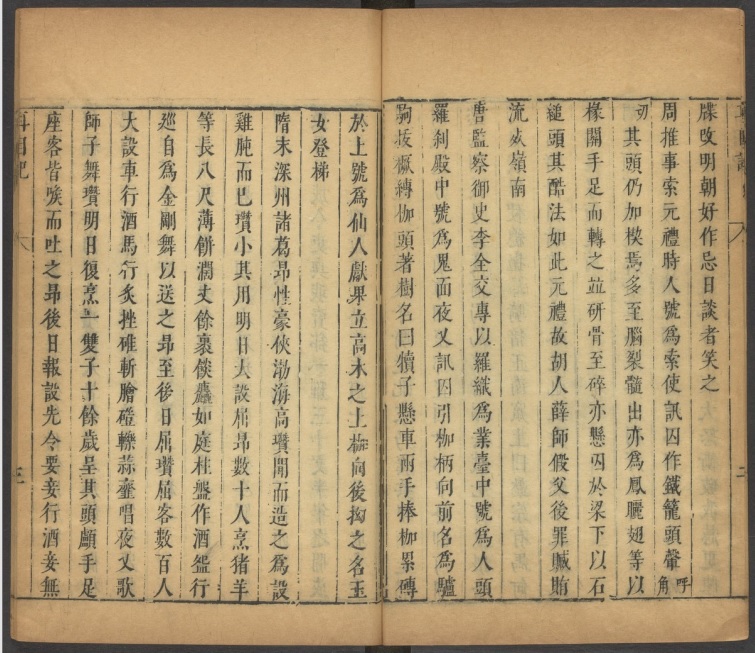 牒改明朝好作忌日談者笑之
周推事索元禮時人號爲索使訊囚作鐵籠頭䯨呼角
切其頭仍加楔焉多至腦裂髓出亦爲鳳曬翅等以
椽關手足而轉之並研骨至碎亦懸囚於梁下以石
縋頭其酷法如此元禮故胡人薛師假父後罪贓賄
流死嶺南
唐監察御史李全交專以羅織爲業臺中號爲人頭
羅刹殿中號爲鬼面夜叉訊囚引枷柄向前名爲驢
駒拔橛縛枷頭著樹名曰犢子懸車兩手捧枷累磚
於上號爲仙人獻果立高木之上枷向後拗之名玉
女登梯
隋末深州諸葛昂性豪俠渤海高瓚聞而造之爲設
雞肫而已瓚小其用明日大設屈昂數十人烹猪羊
等長八尺薄餅濶丈餘裹餤麤如庭柱盤作酒盌行
巡自爲金剛舞以送之昂至後日屈瓚屈客數百人
大設車行酒馬行炙挫碓斬膾磑轢蒜虀唱夜叉歌
師子舞瓚明日復烹一雙子十餘歲呈其頭顱手足
座客皆喉而吐之昂後日報設先令要妾行酒妾無
耳目記 八 三